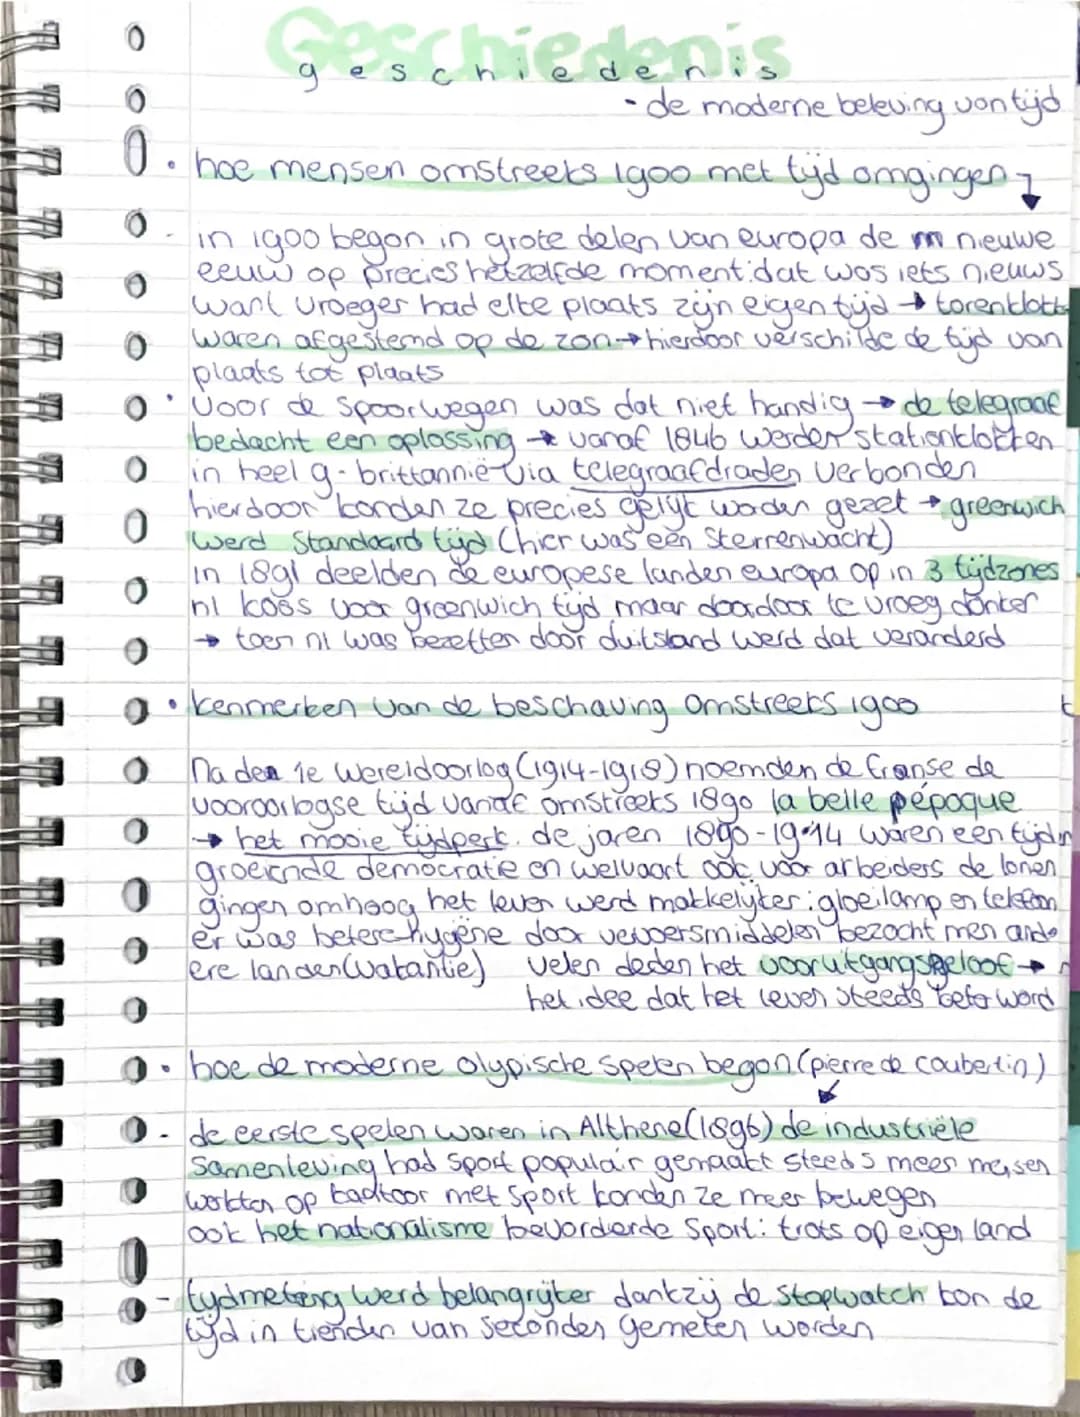 Geschiedenis
geschiedenis
- de moderne beleving van tijd
• hoe mensen omstreeks 1900 met tijd omgingen
- in 1900 begon in grote delen van europa de m nieuwe
eeuw op precies hetzelfde moment: dat was iets nieuws
want vroeger had elke plaats zijn eigen tijd → torenklokk
waren afgestemd op de zon → hierdoor verschilde de tijd van
plaats tot plaats
• Voor de spoorwegen was dat niet handig → de telegraaf
bedacht een oplossing → vanaf 1846 werden stationklokken
in heel g-brittannië via telegraafdraden verbonden
hierdoor konden ze precies gelijk worden gezet → greenwich
werd standaard tijd (hier was een sterrenwacht)
In 1891 deelden de europese landen europa op in 3 tijdzones
nl koos voor greenwich tijd maar daardoor te vroeg donker
→ toen nl was bezetten door duitsland werd dat veranderd
• kenmerken van de beschaving omstreeks 1900
Na den 1e wereldoorlog (1914-1918) noemden de franse de
vooroorlogse tijd vanaf omstreeks 1890 la belle pépoque
→ het mooie tijdperk. de jaren 1890-1914 waren een tijd
groeiende democratie en welvaart ook voor arbeiders de lonen
gingen omhoog het leven werd makkelijker: gloeilamp en telefoon
er was betere hygëne door vervoersmiddelen bezocht men ande
ere landen (vakantie) velen deden het vooruitgangsgeloof →
het idee dat het leven steeds beter word
• hoe de moderne olypische spelen begon (pierre de coubertin)
- de eerste spelen waren in Althene (1896) de industriële
samenleving had sport populair gemaakt steeds meer mensen
werkten op kantoor met sport konden ze meer bewegen
ook het nationalisme bevorderde sport: trots op eigen land
- tijdmeting werd belangrijker dankzij de stopwatch kon de
tijd in tienden van seconden gemeten worden